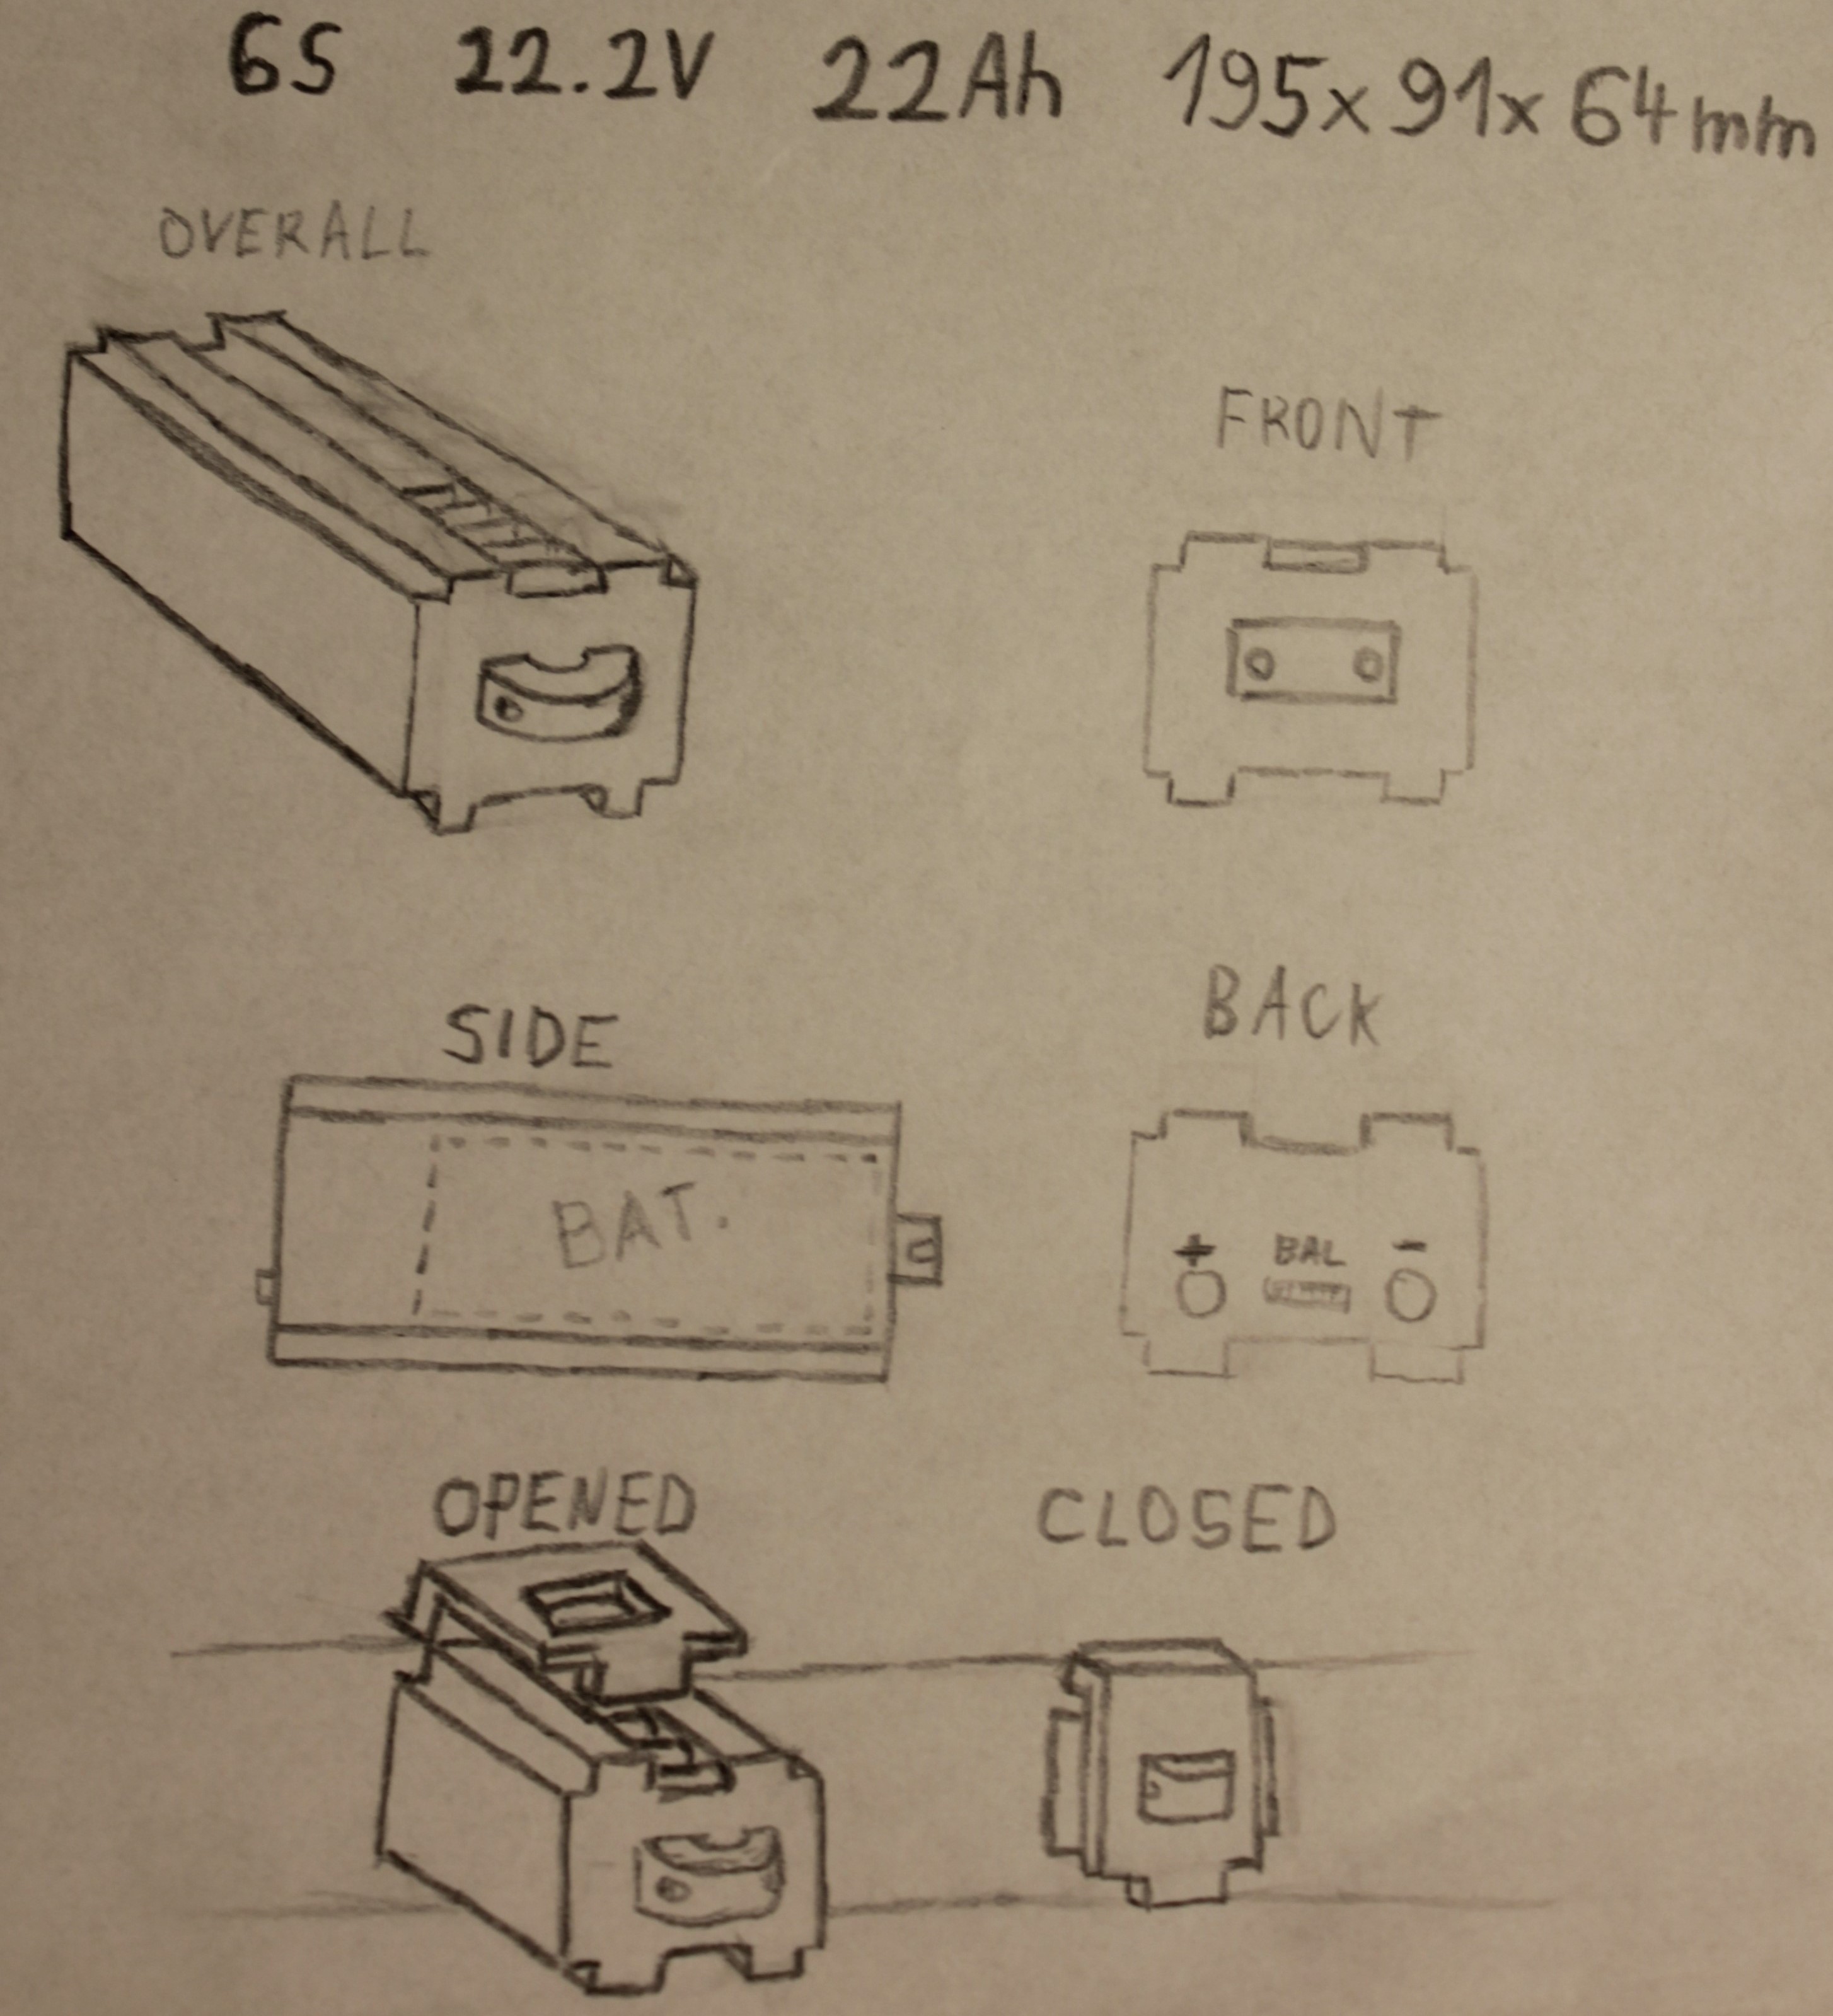 6S 22.2V 22Ah 195x91x64mm
OVERALL
FRONT
SIDE
BACK
BAT.
+ BAL -
OPENED
CLOSED